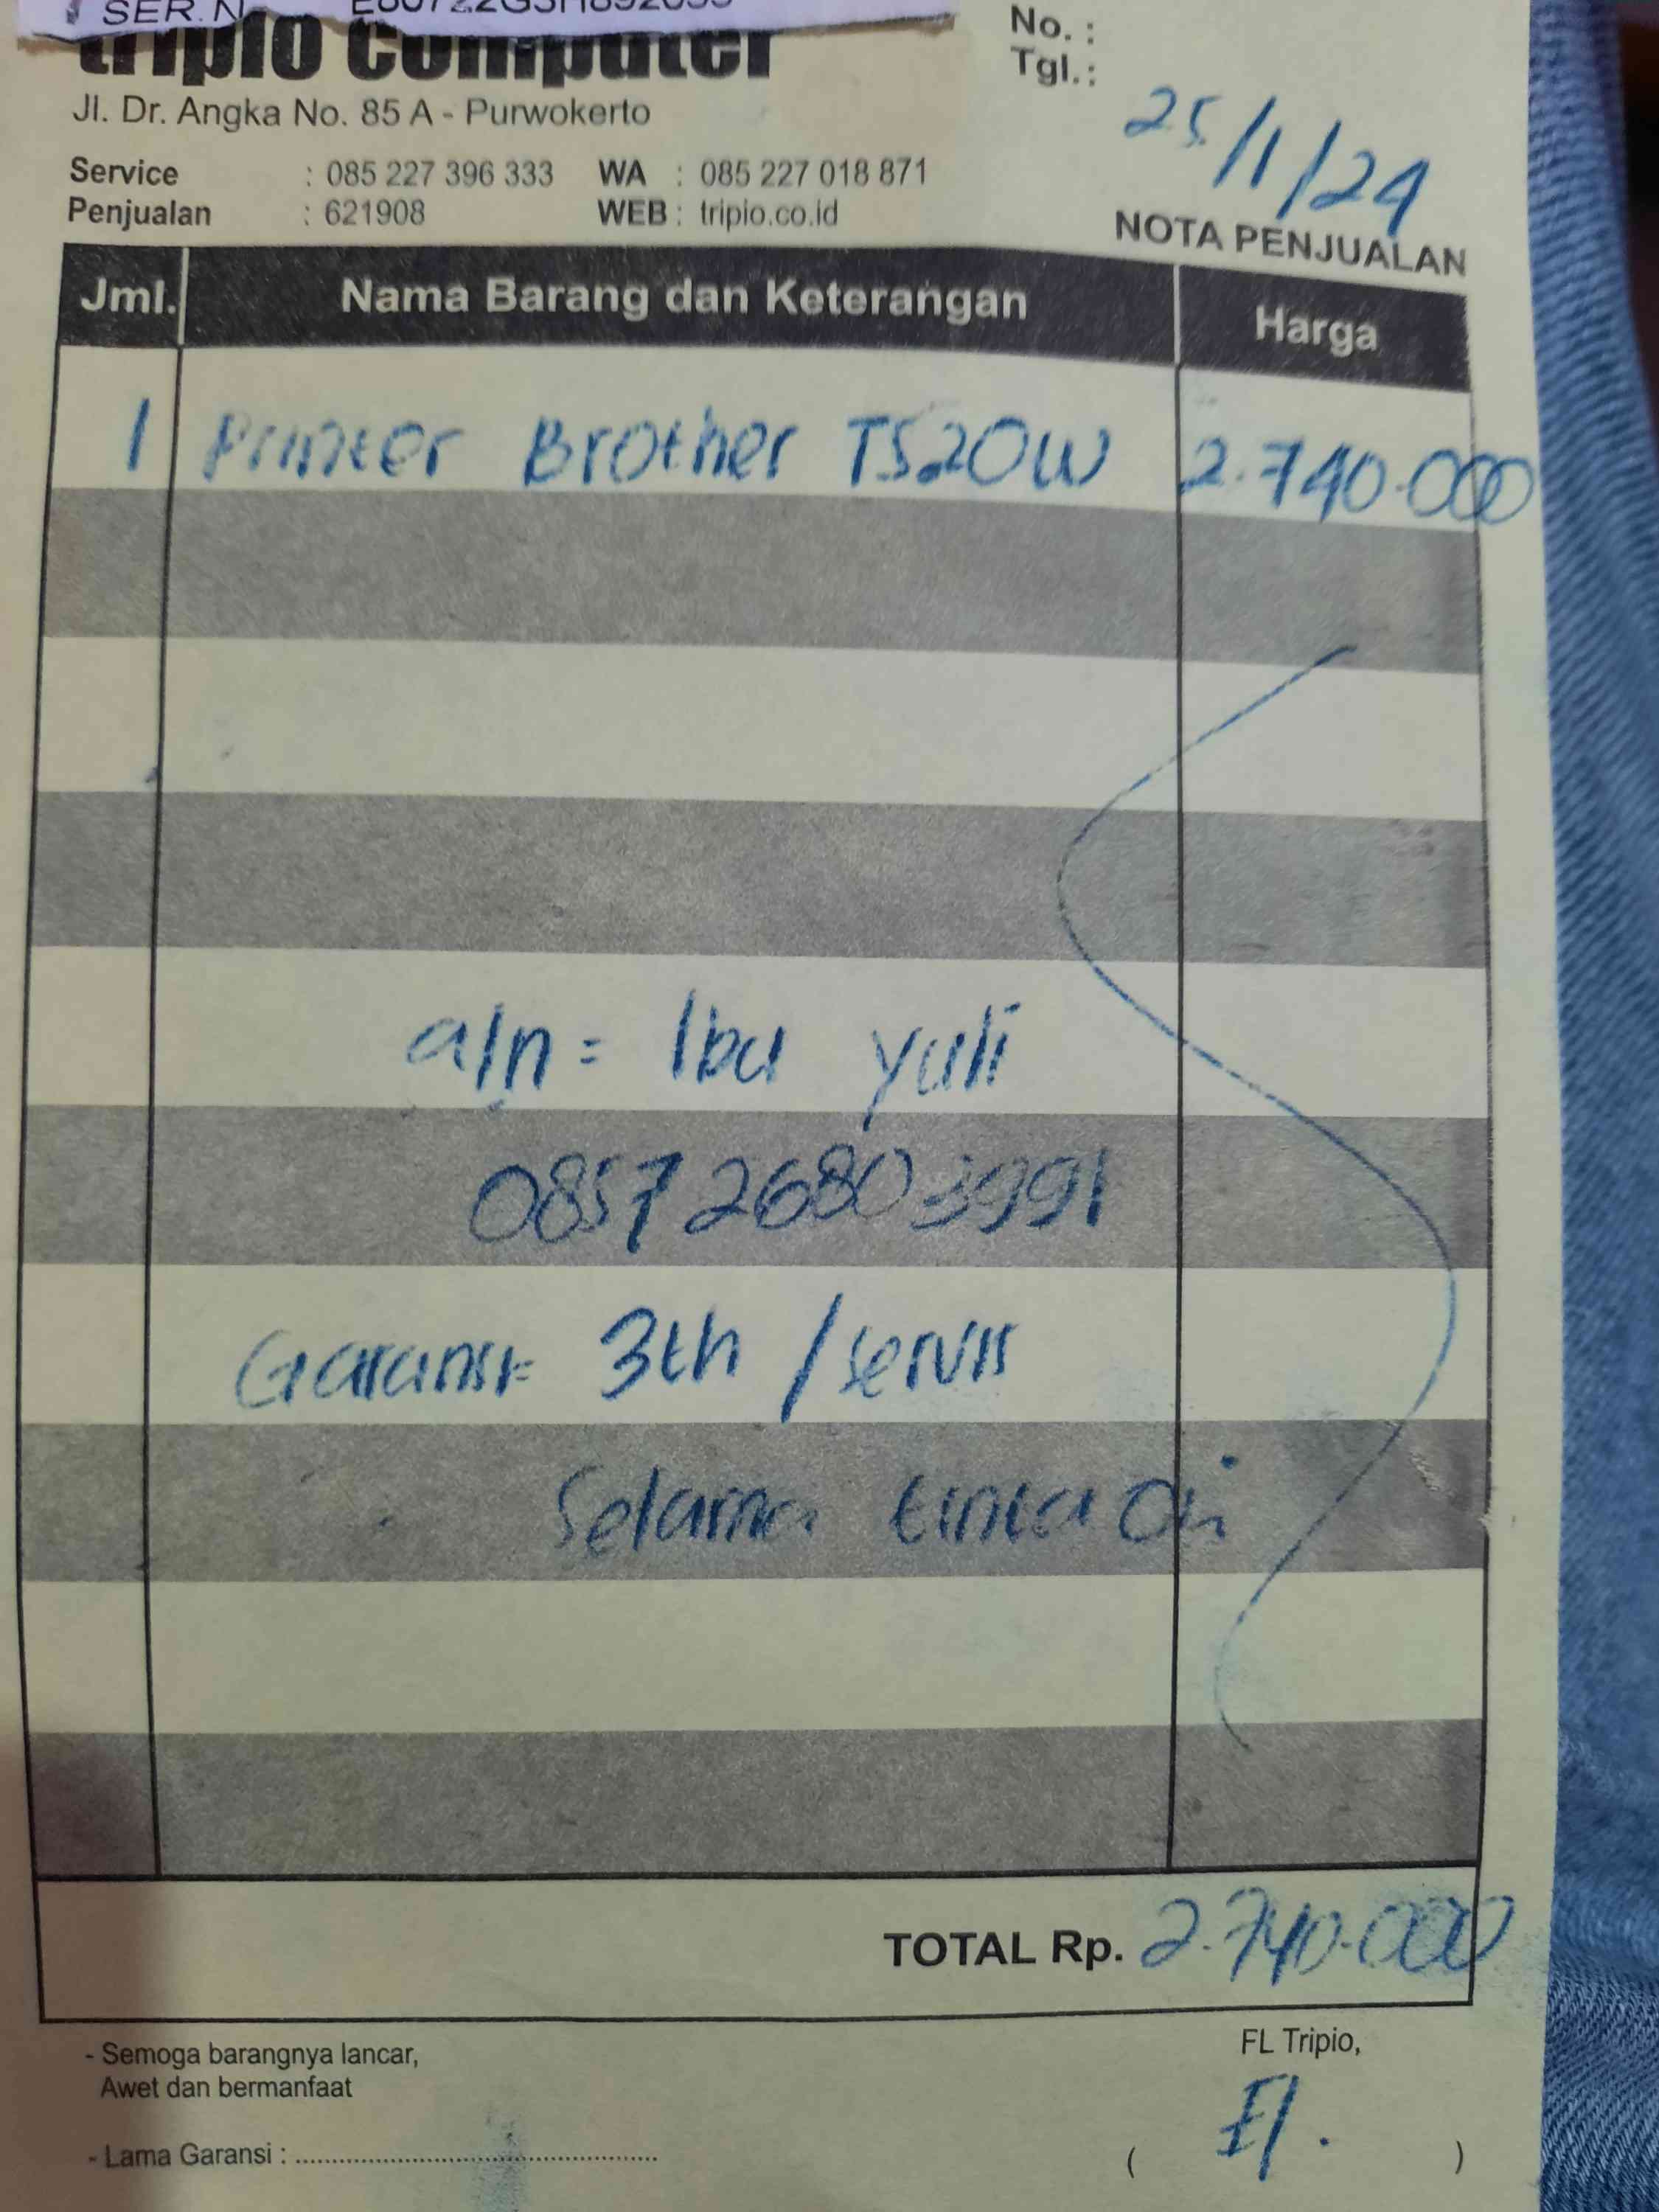 SER. N
tripio computer
Jl. Dr. Angka No. 85 A - Purwokerto
Service : 085 227 396 333 WA : 085 227 018 871
Penjualan : 621908 WEB : tripio.co.id
No. :
Tgl.: 25/1/24
NOTA PENJUALAN
Jml. Nama Barang dan Keterangan Harga
1 Printer Brother T520W 2.740.000
a/n = Ibu yuli
085726803991
Garansi= 3th / servis
Selama tinta Ori
TOTAL Rp. 2.740.000
- Semoga barangnya lancar,
Awet dan bermanfaat
- Lama Garansi : ..........................................................
FL Tripio,
( El. )